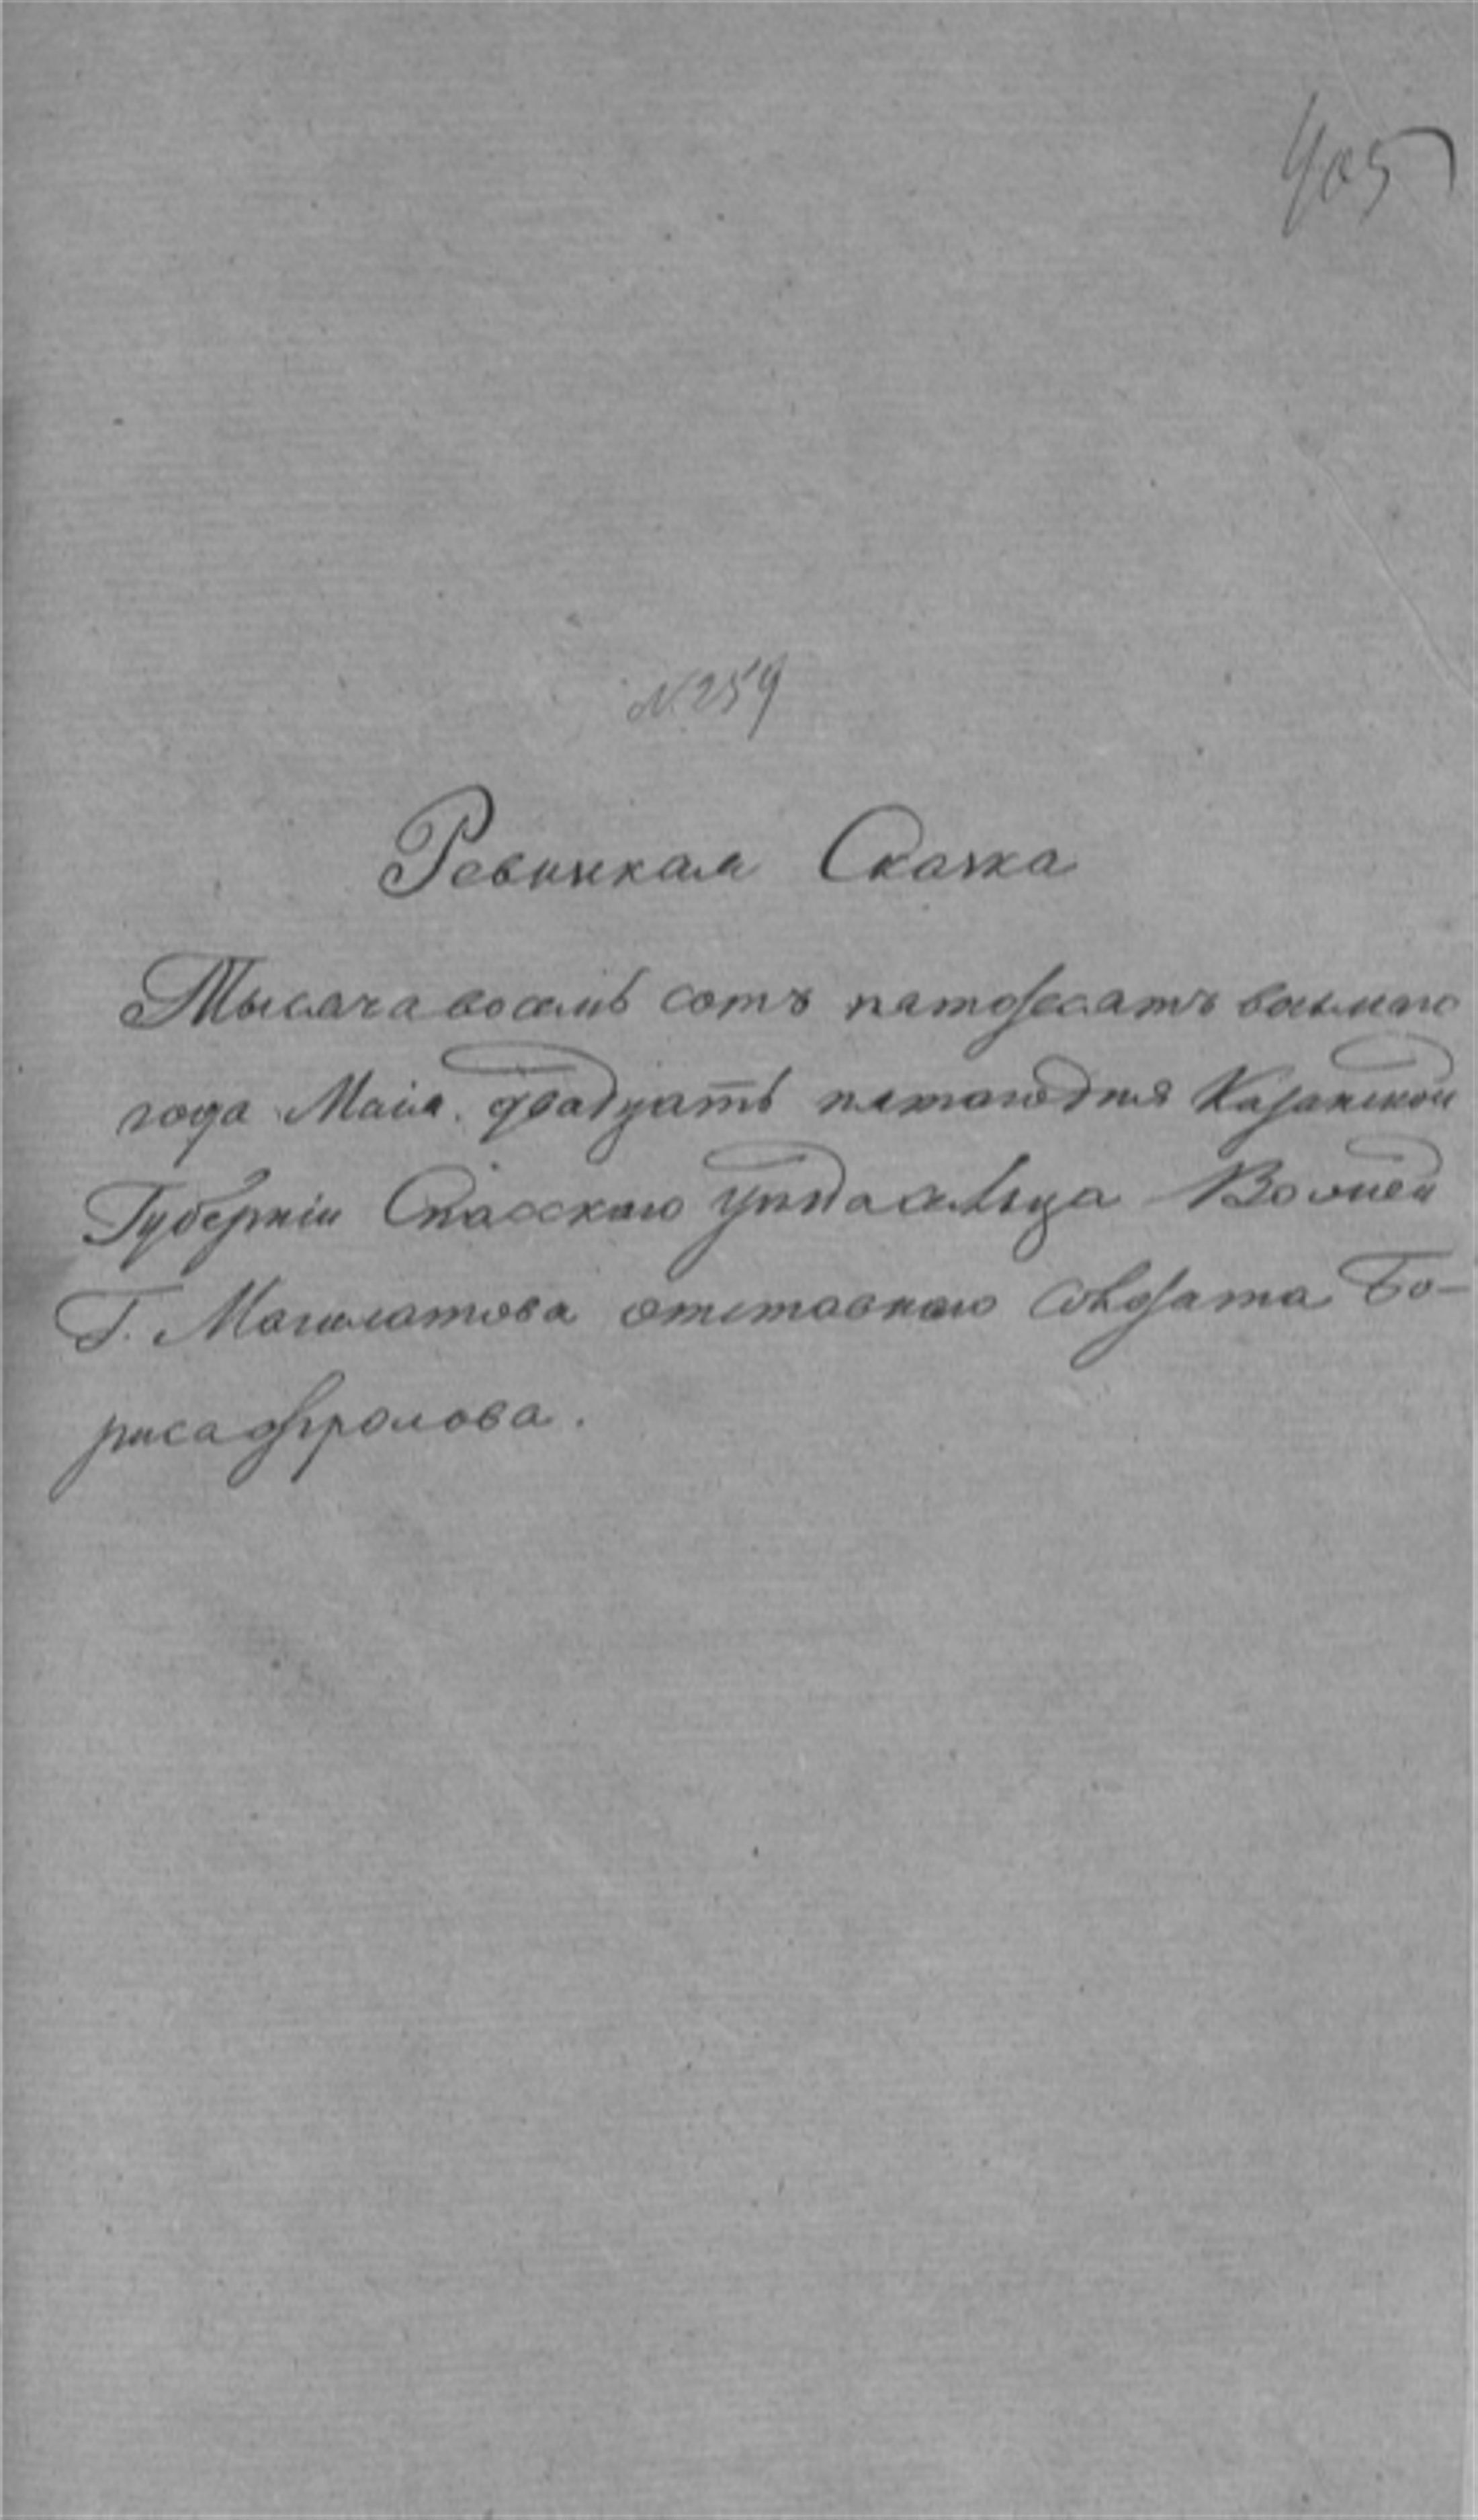 405
N. 259
Ревижкая Скаска
Тысяча восемь сотъ пятдесятъ восьмаго
года Маия двадцать пятаго дня Казанской
Губерніи Спасскаго уѣзда сельца
Г. отставнаго солдата Бо-
риса Фролова.